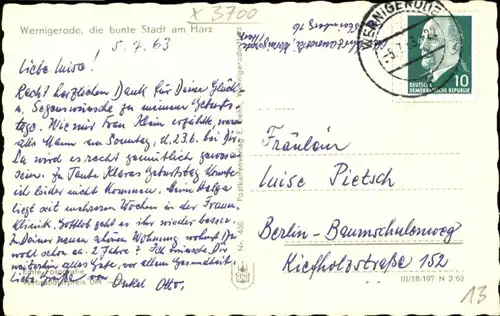 x 3700
Wernigerode, die bunte Stadt am Harz
5.7.63
Liebe Luise!
Recht herzlichen Dank für Deine Glück-
u. Segenswünsche zu meinem Geburts-
tage. Wie mir Frau Klein erzählte, waren
alle Mann am Sonntag, d. 23.6. bei Dir.
Da wird es recht gemütlich gewesen
sein. Zu Tante Klaras Geburtstag konnte
ich leider nicht kommen. Helga
liegt seit mehreren Wochen in der Frauen-
klinik. Gottlob geht es ihr wieder besser.
In Deiner neuen Wohnung wohnst Du
wohl schon ca. 2 Jahre? Ich wünsche Dir
weiterhin alles Gute, vor allem Gesundheit.
Liebe Grüße von Onkel Otto,
Echte Fotografie
Nr. 406
Postkartenverlag
WERNIGERODE
-5.7.63
10
DEUTSCHE
DEMOKRATISCHE REPUBLIK
Fräulein
Luise Pietsch
Berlin-Baumschulenweg
Kiefholzstraße 152
III/18/197 N 3/63
13